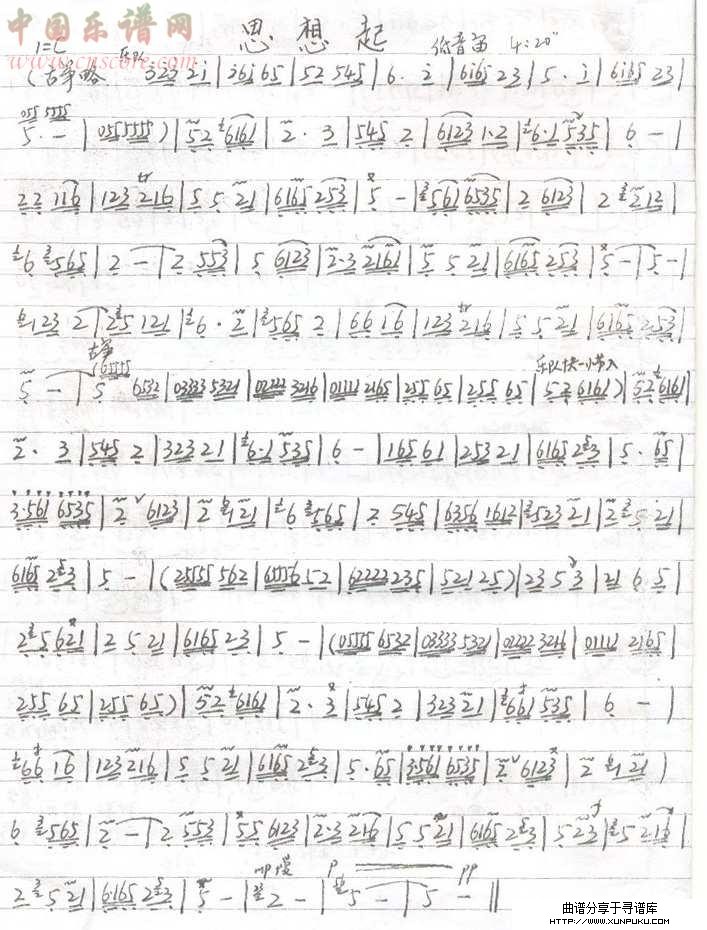 中国乐谱网
www.cnscore.com
思想起
1=C
低音笛 4:20"
乐队
(古筝略 322 21 | i6i 65 | 52 545 | 6· i | 6i65 23 | 5 · i | 6i65 23 |
055 5555
5 · - | 0555555 ) | 52 6161 | 2 · 3 | 545 2 | 6123 1·2 | 6·1 535 | 6 - |
22 116 | 123 216 | 5 5 21 | 6165 253 | 5 - | 561 6535 | 2 6123 | 2 212 |
6 565 | 2 - | 2 553 | 5 6123 | 2·3 2161 | 5 5 21 | 6165 253 | 5 - | 5 - |
123 2 | 25 121 | 6 · 2 | 565 2 | 66 16 | 123 216 | 5 5 21 | 6165 253 |
古筝
乐队快一小节入
5 - | 5 6532 | 03333 5321 | 02222 3216 | 01111 2165 | 255 65 | 255 65 | 52 6161 ) | 52 6161 |
2 · 3 | 545 2 | 323 21 | 6·1 535 | 6 - | 165 61 | 253 21 | 6165 253 | 5 · 65 |
3·561 6535 | 2 6123 | 2 21 | 6 565 | 2 545 | 6356 1612 | 523 21 | 2 5 21 |
6165 253 | 5 - | ( 25555 562 | 65556 52 | 62222 235 | 521 25 ) | 23 5 3 | 21 6 5 |
2 5 621 | 2 5 21 | 6165 23 | 5 - | ( 05555 6532 | 03333 5321 | 02222 3216 | 01111 2165 |
255 65 | 255 65 ) | 52 6161 | 2 · 3 | 545 2 | 323 21 | 661 535 | 6 - |
66 16 | 123 216 | 5 5 21 | 6165 253 | 5 · 65 | 3561 6535 | 2 6123 | 2 21 )
6 565 | 2 - | 2 553 | 55 6123 | 2·3 216 | 5 5 21 | 6165 253 | 5 23 | 5 216 |
mp 慢 p pp
2 5 21 | 6·165 253 | 5 - | 2 - | 5 - | 5 - ‖
曲谱分享于寻谱库
HTTP://WWW.XUNPUKU.COM